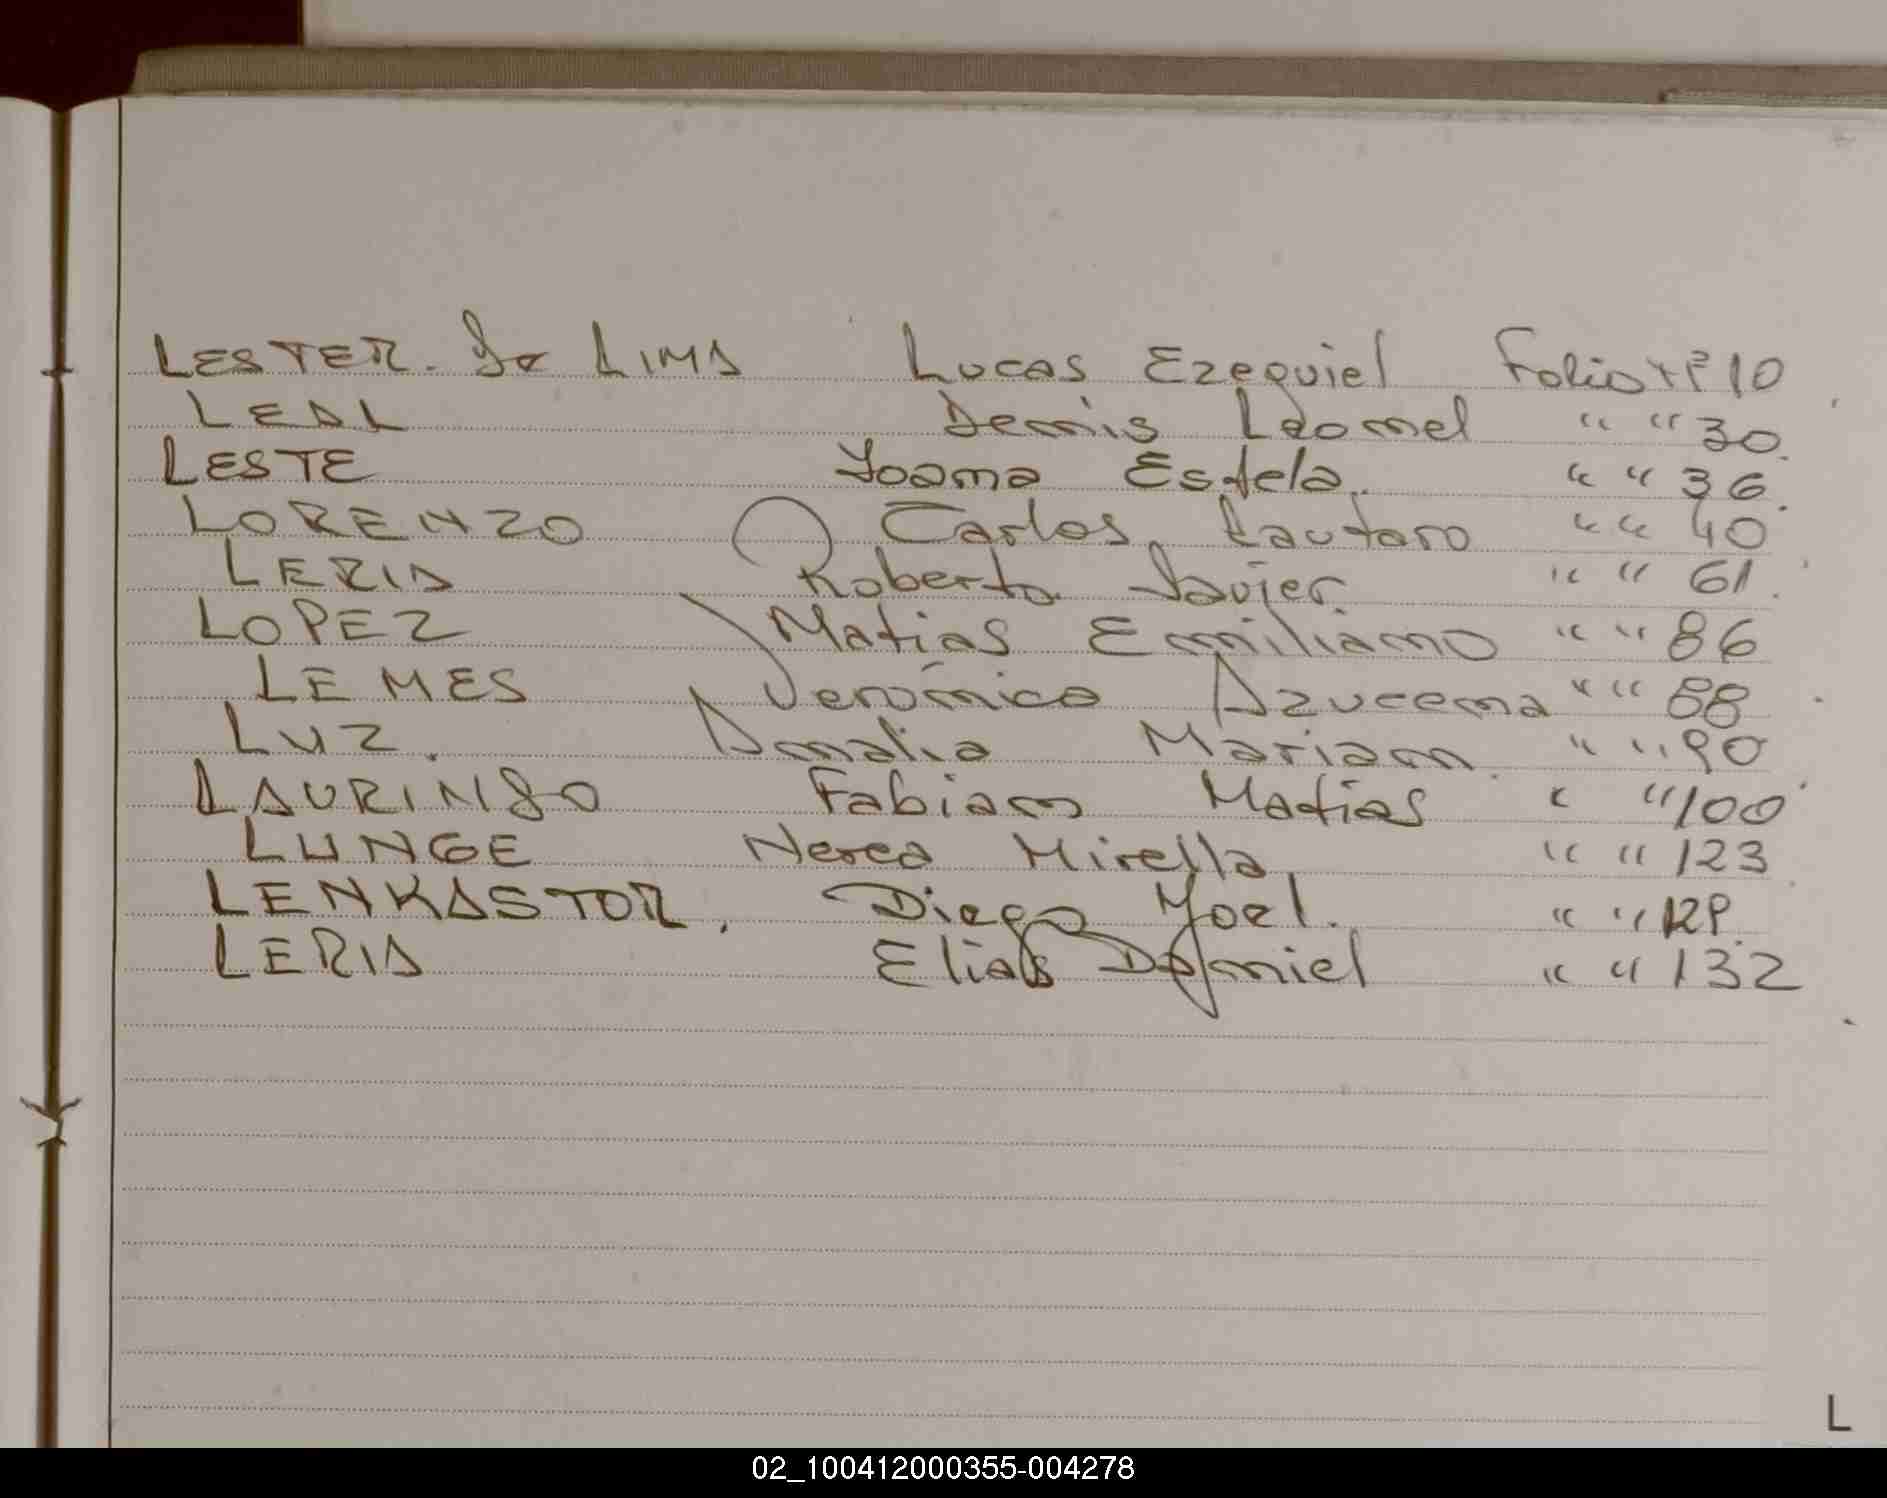 LESTER. De LIMA Lucas Ezequiel Folio Nº 10
LEAL Dennis Leonnel " " 30
LESTE Yoana Estela. " " 36
LORENZO Carlos Lautaro " " 40
LERIA Roberto Javier. " " 61
LOPEZ Matías Emiliano " " 86
LEMES Verónica Azucena " " 88
LUZ. Analia Mariam " " 90
LAURINDO Fabian Matías " " 100
LUNGE Nerea Mirella " " 123
LENKASTOR, Diego Yoel. " " 129
LERIA Elias Daniel " " 132
L
02_100412000355-004278